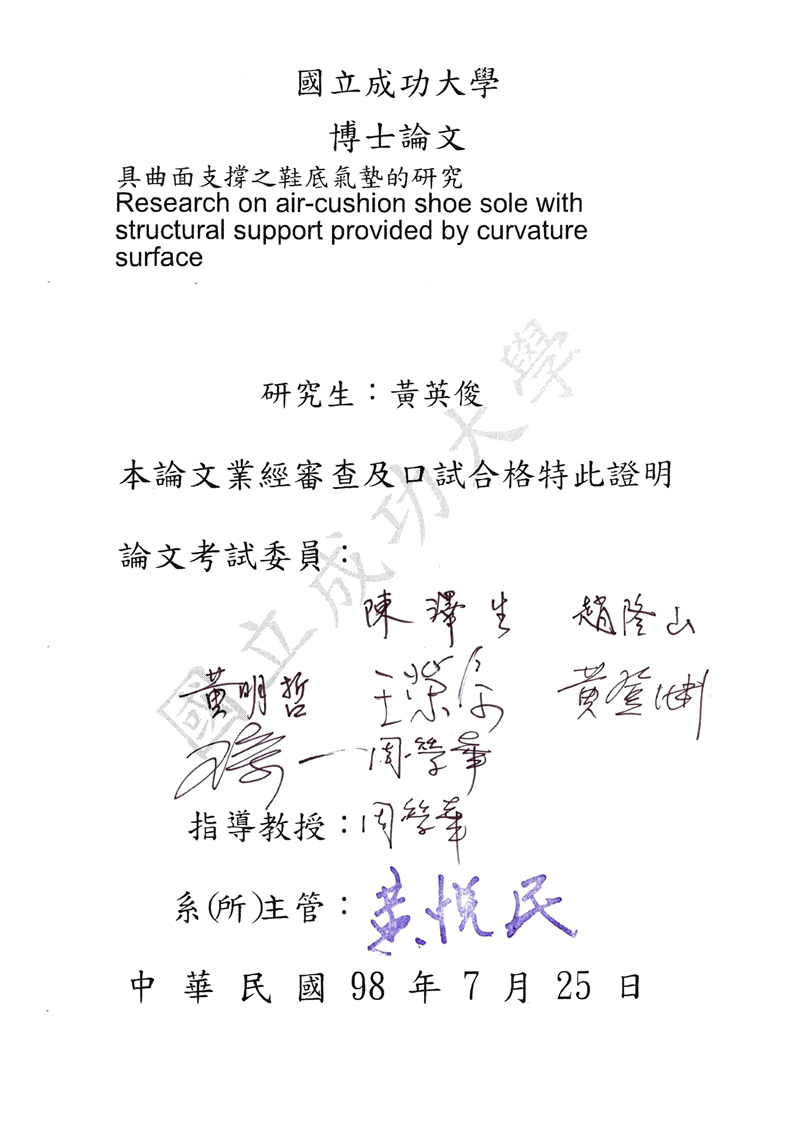 國立成功大學
博士論文
具曲面支撐之鞋底氣墊的研究
Research on air-cushion shoe sole with
structural support provided by curvature
surface
研究生：黃英俊
本論文業經審查及口試合格特此證明
論文考試委員：
陳澤生 趙隆山
黃明哲 王榮
周榮華
指導教授：周榮華
系(所)主管：黃悅民
中華民國 98 年 7 月 25 日
國立成功大學